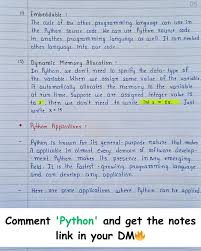 11) Embeddable :
The code of the other programming language can use in
the Python source code. We can use Python source code
in another programming language as well. It can embed
other language into our code.
12) Dynamic Memory Allocation :
In Python, we don't need to specify the data-type of
the variable. When we assign some value of the variable,
it automatically allocates the memory to the variable
at run time. Suppose we assigned integer value is
to x, then we don't need to write int x = 15.
Just write x = 15
Python Applications :
Python is known for its general-purpose nature that make
it applicable in almost every domain of software develop-
ment. Python makes its presence in every emerging
field. It is the fastest-growing programming language
and can develop any application.
Here are some applications where Python can be applied.
Comment 'Python' and get the notes
link in your DM🔥